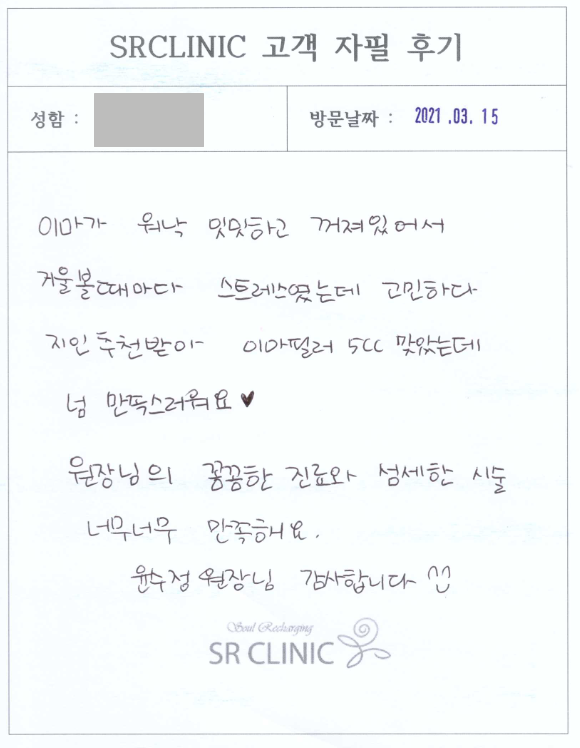 SRCLINIC 고객 자필 후기
성함 :
방문날짜 : 2021 .03. 15
이마가 워낙 밋밋하고 꺼져있어서
거울볼때마다 스트레스였는데 고민하다
지인추천받아 이마필러 5CC 맞았는데
넘 만족스러워요 ♥
원장님의 꼼꼼한 진료와 섬세한 시술
너무너무 만족해요.
윤수정 원장님 감사합니다
Soul Recharging
SR CLINIC